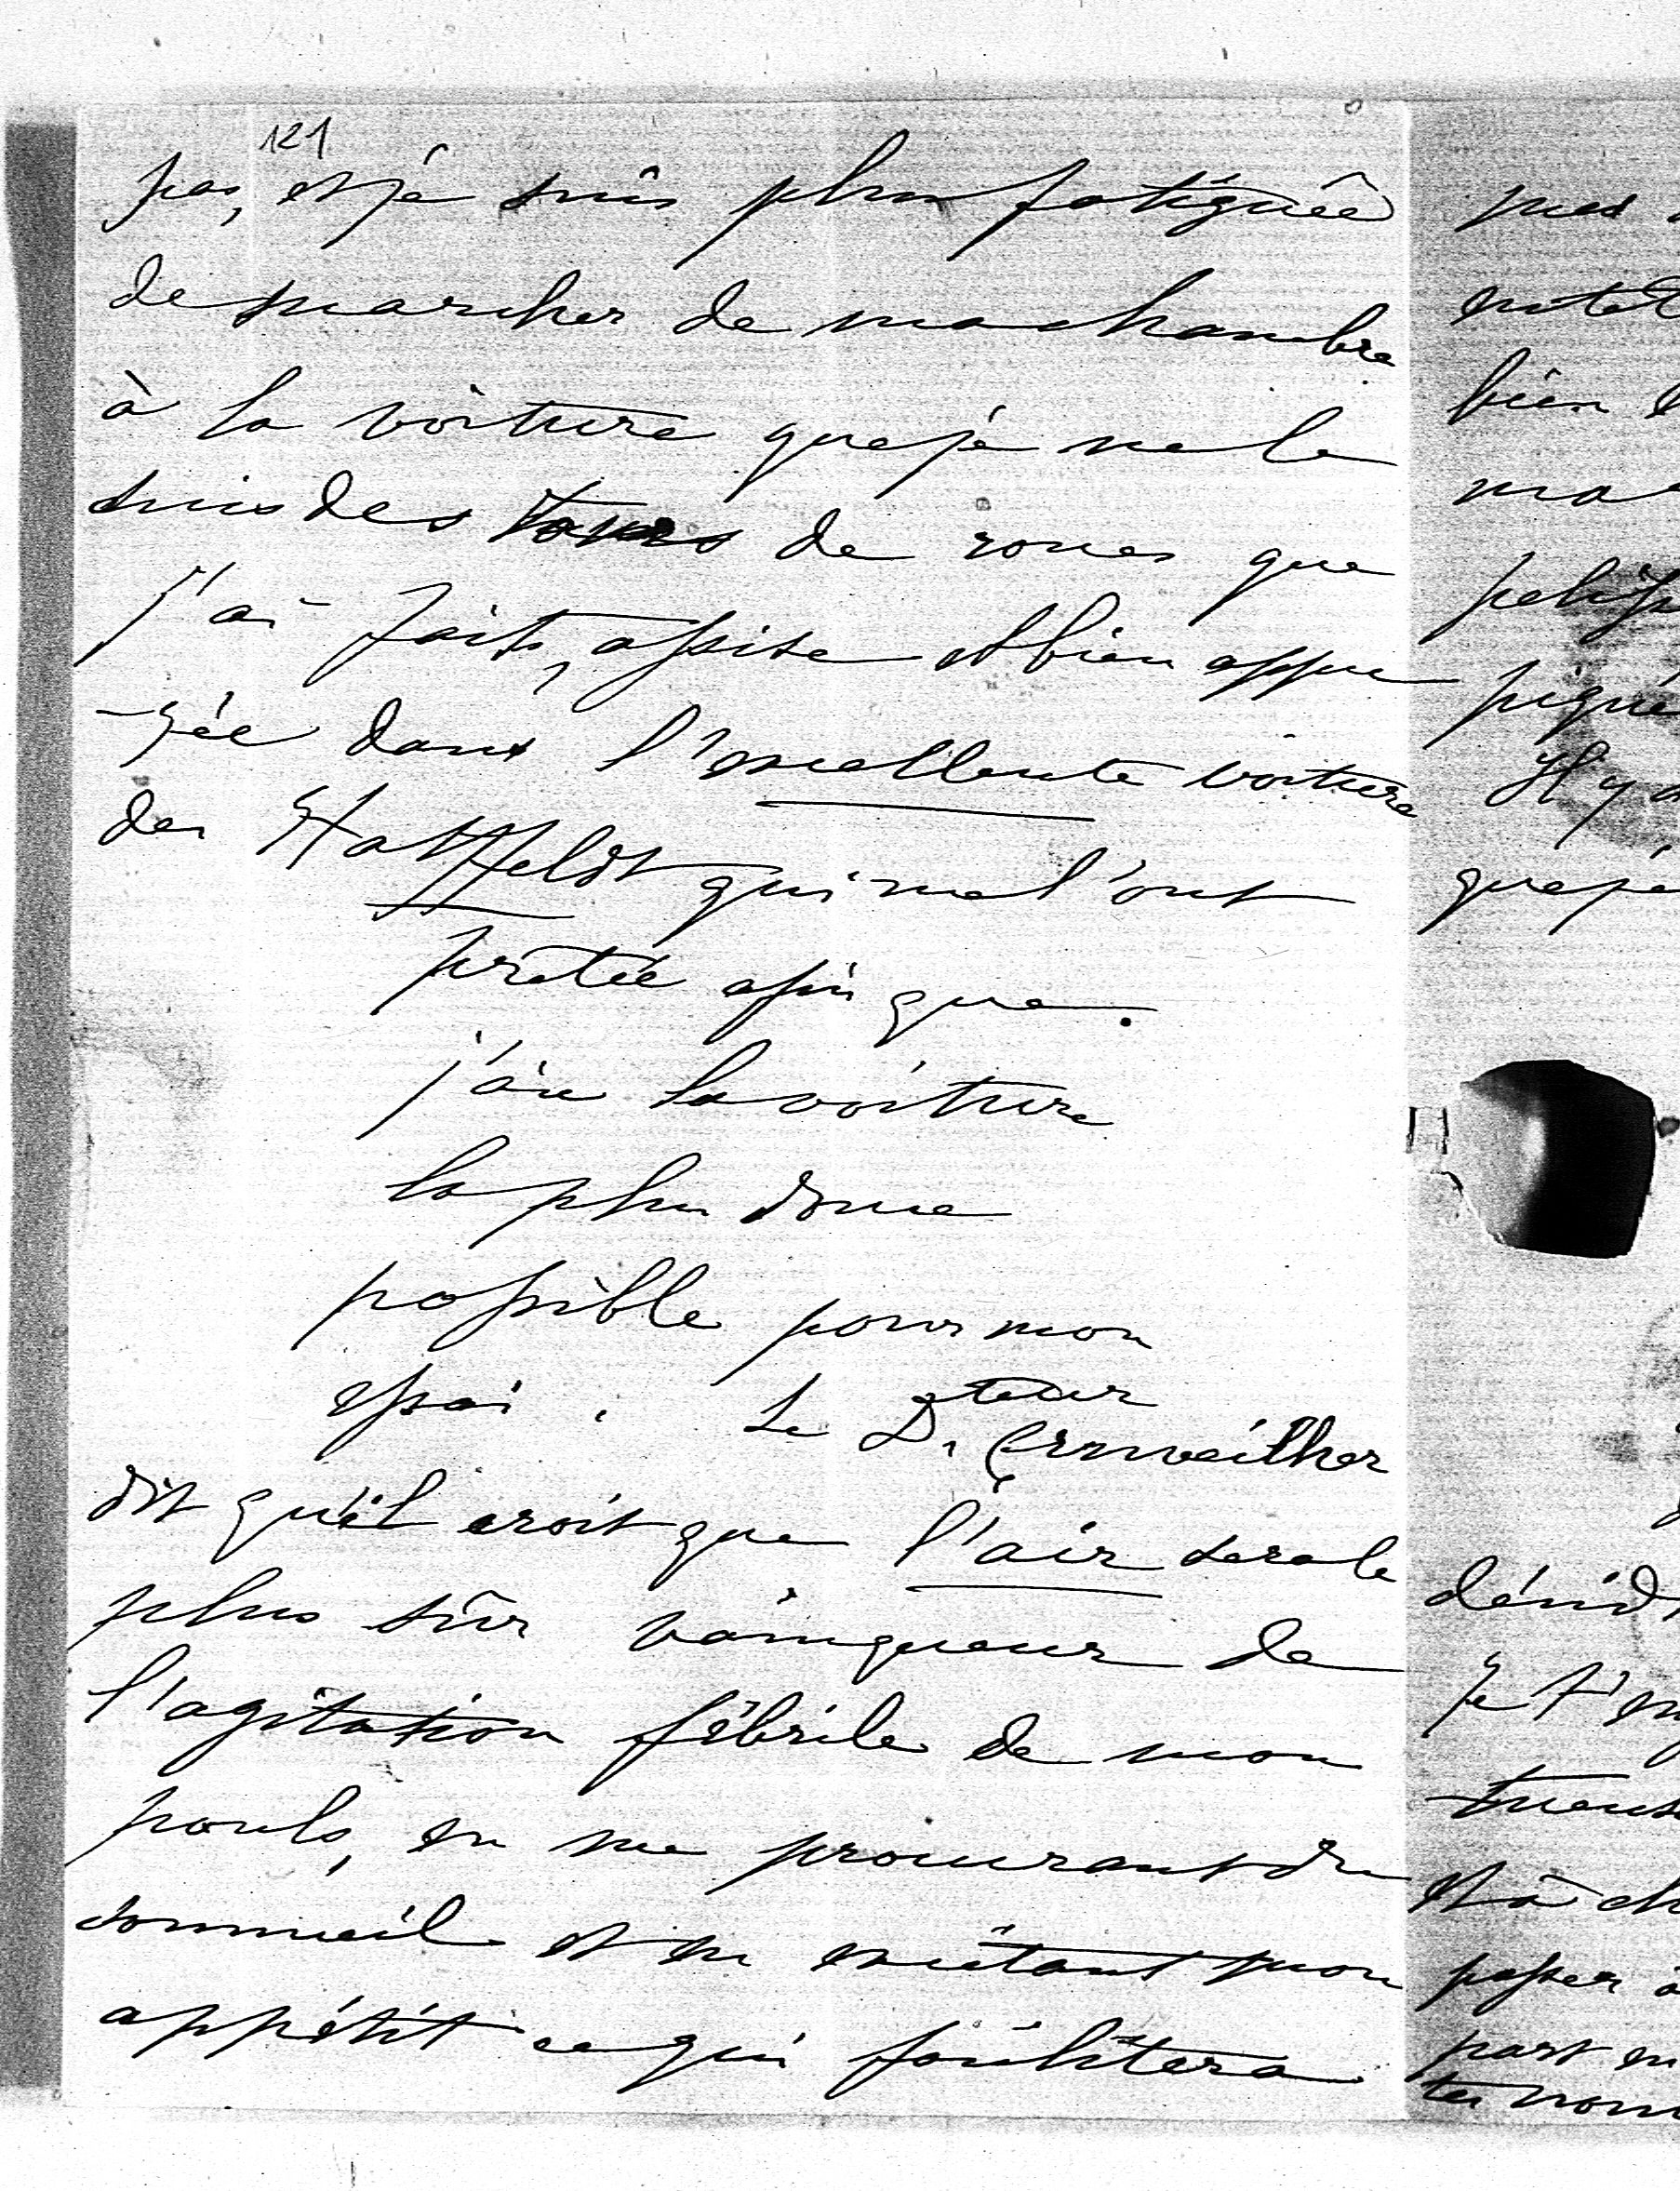 121
pas, et je suis plus fatiguée
de marcher de ma chambre
à la voiture que je ne le
suis des tours de roues que
j'ai faits, assise et bien appu
-yée dans l'excellente voiture
des Hatzfeldt qui me l'ont
prêtée afin que
j'aie la voiture
la plus douce
possible pour mon
essai. Le Dr Cruveilher
dit qu'il croit que l'air sera le
plus sûr vainqueur de
l'agitation fébrile de mon
pouls, en me procurant du
sommeil et en excitant mon
appétit ce qui facilitera
pues
bien
ma
Il y a
que je
Je t'en
et à ch
passer à
part en